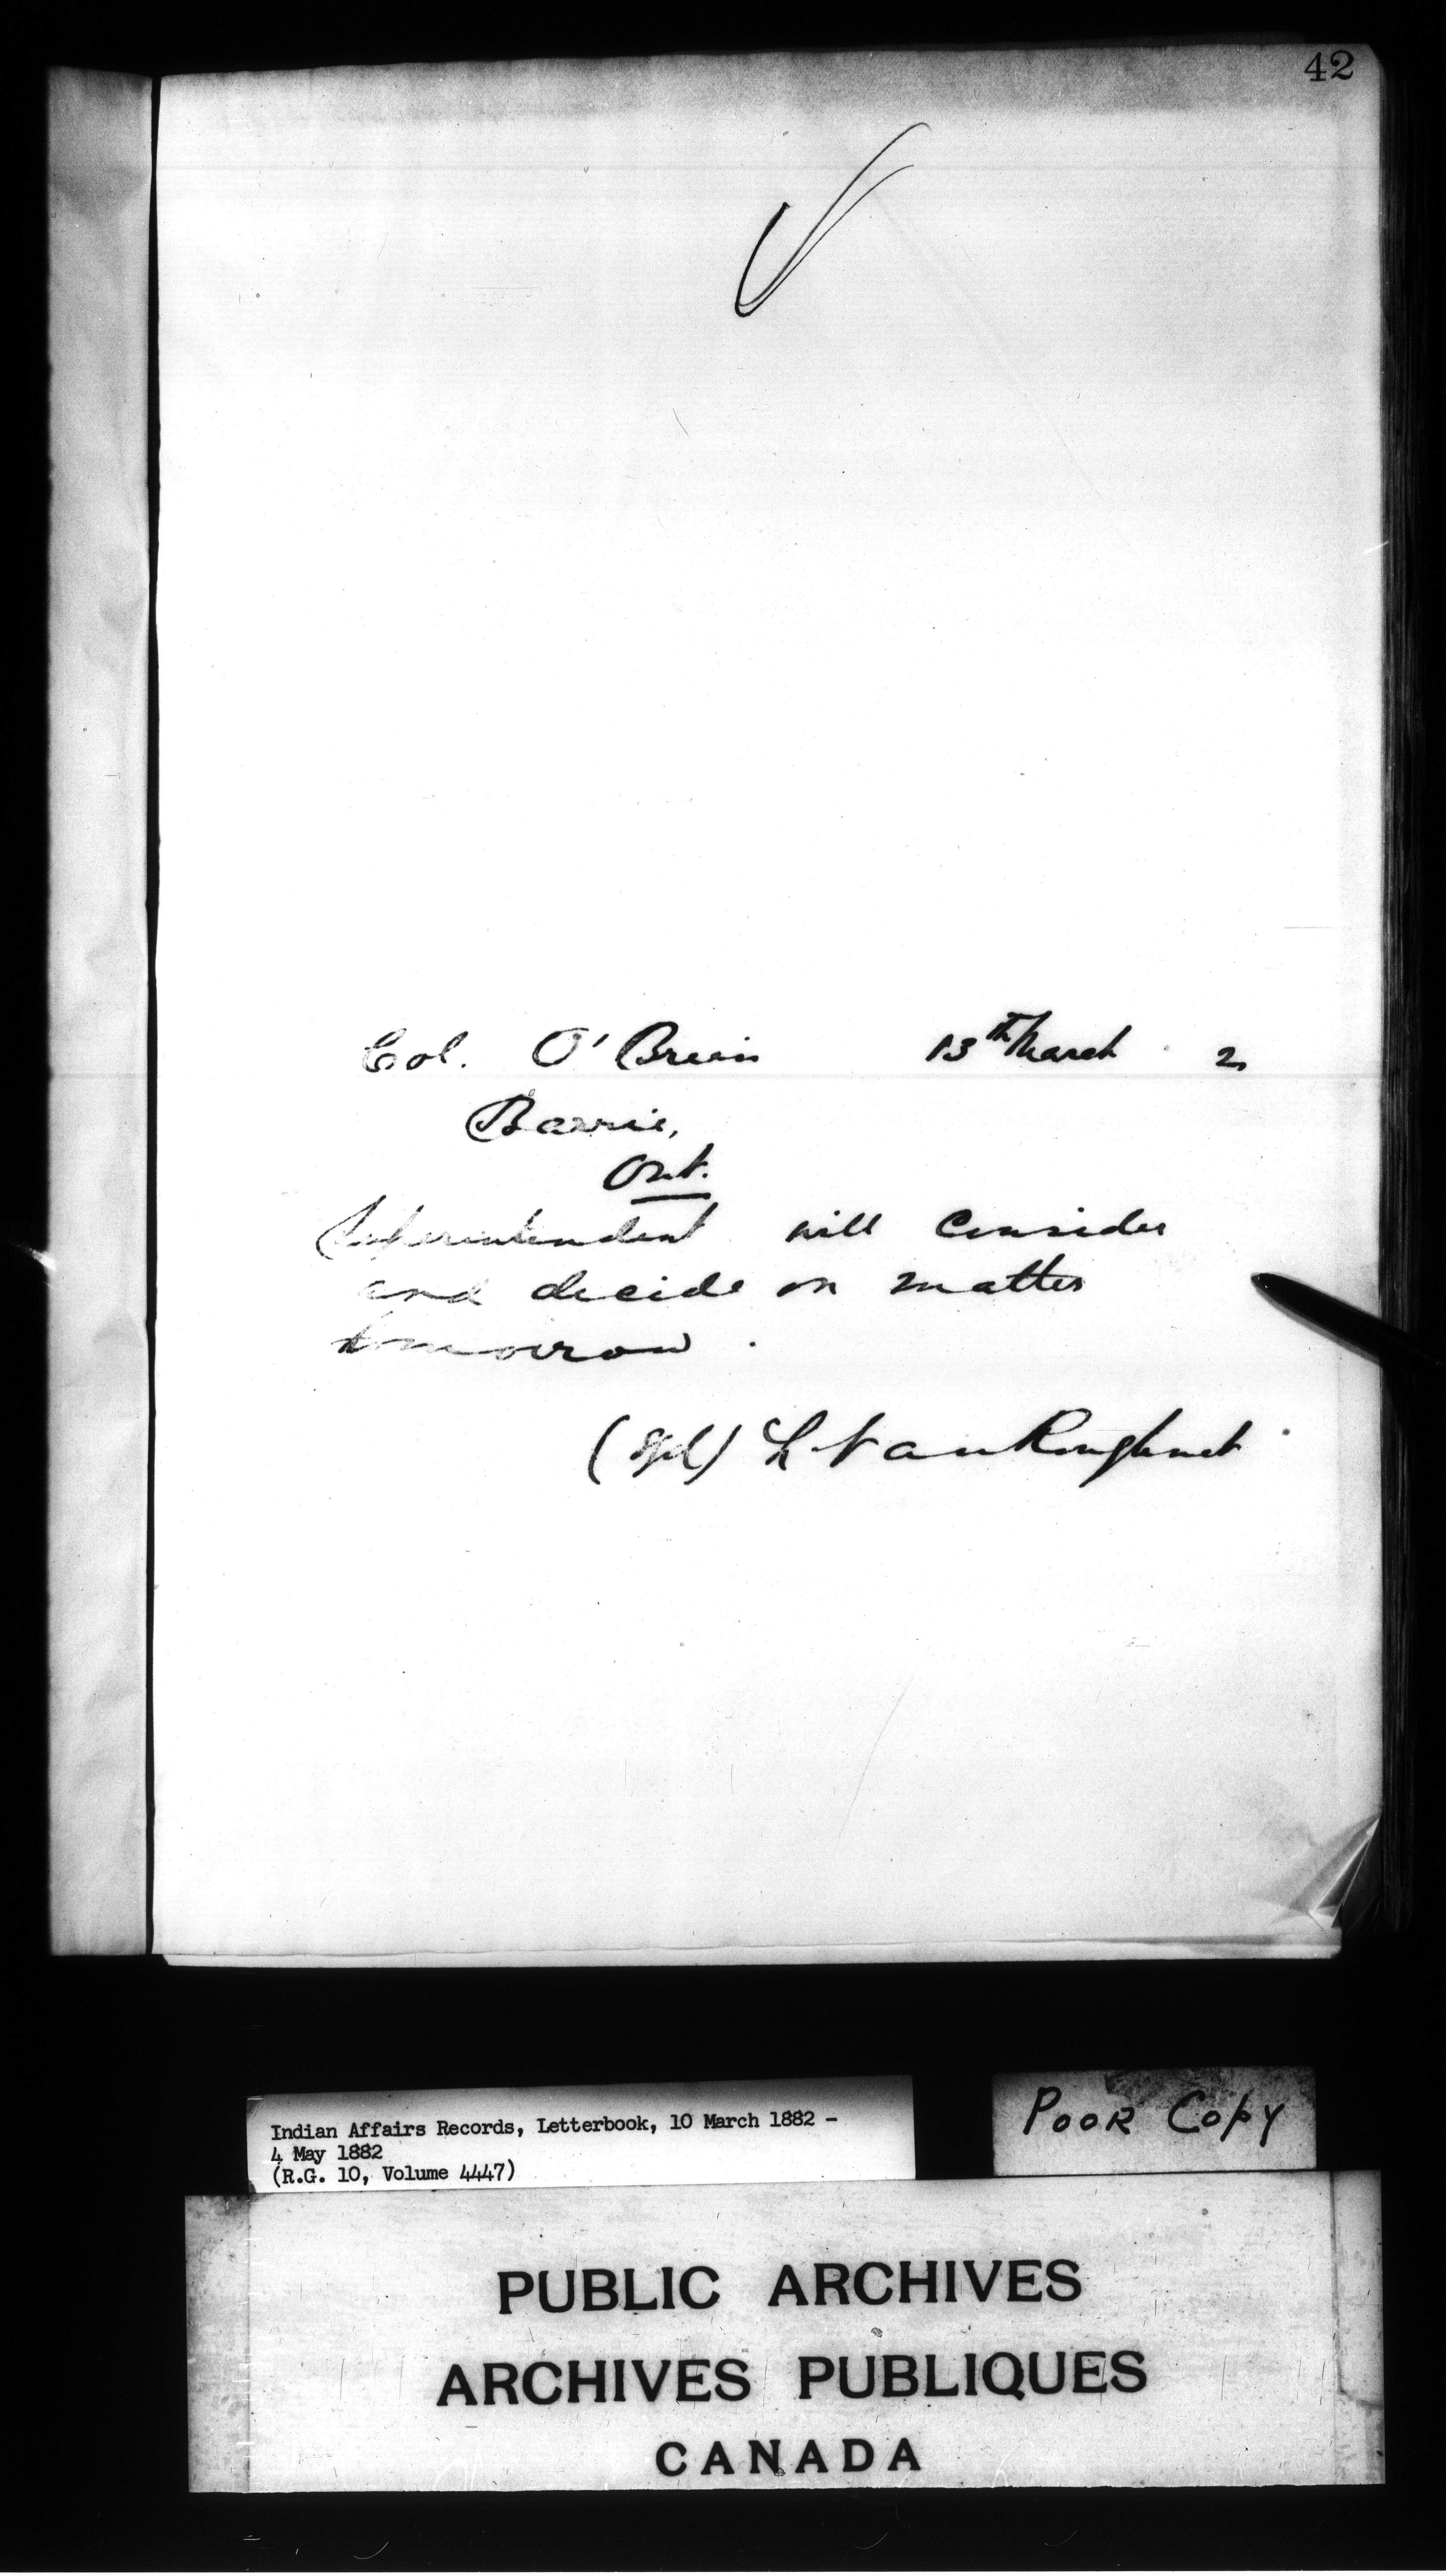 42
Col. O'Brien 13th March 2
Barrie,
Ont.
Superintendent will consider
and decide on matter
tomorrow.
(Sgd) L VanKoughnet
Indian Affairs Records, Letterbook, 10 March 1882 -
4 May 1882
(R.G. 10, Volume 4447)
POOR COPY
PUBLIC ARCHIVES
ARCHIVES PUBLIQUES
CANADA